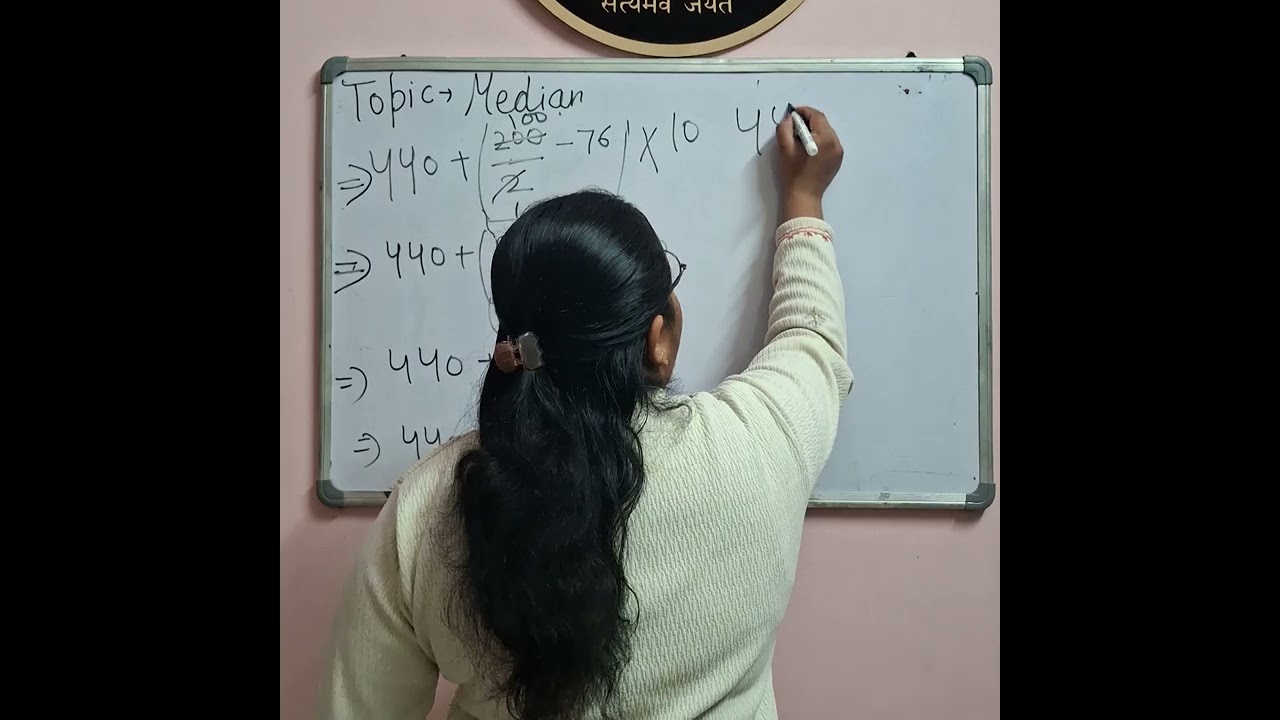 सत्यमेव जयते
Topic→ Median
100
⇒ 440 + (200/2 - 76) X 10 44
1
⇒ 440 + (
⇒ 440 +
⇒ 44